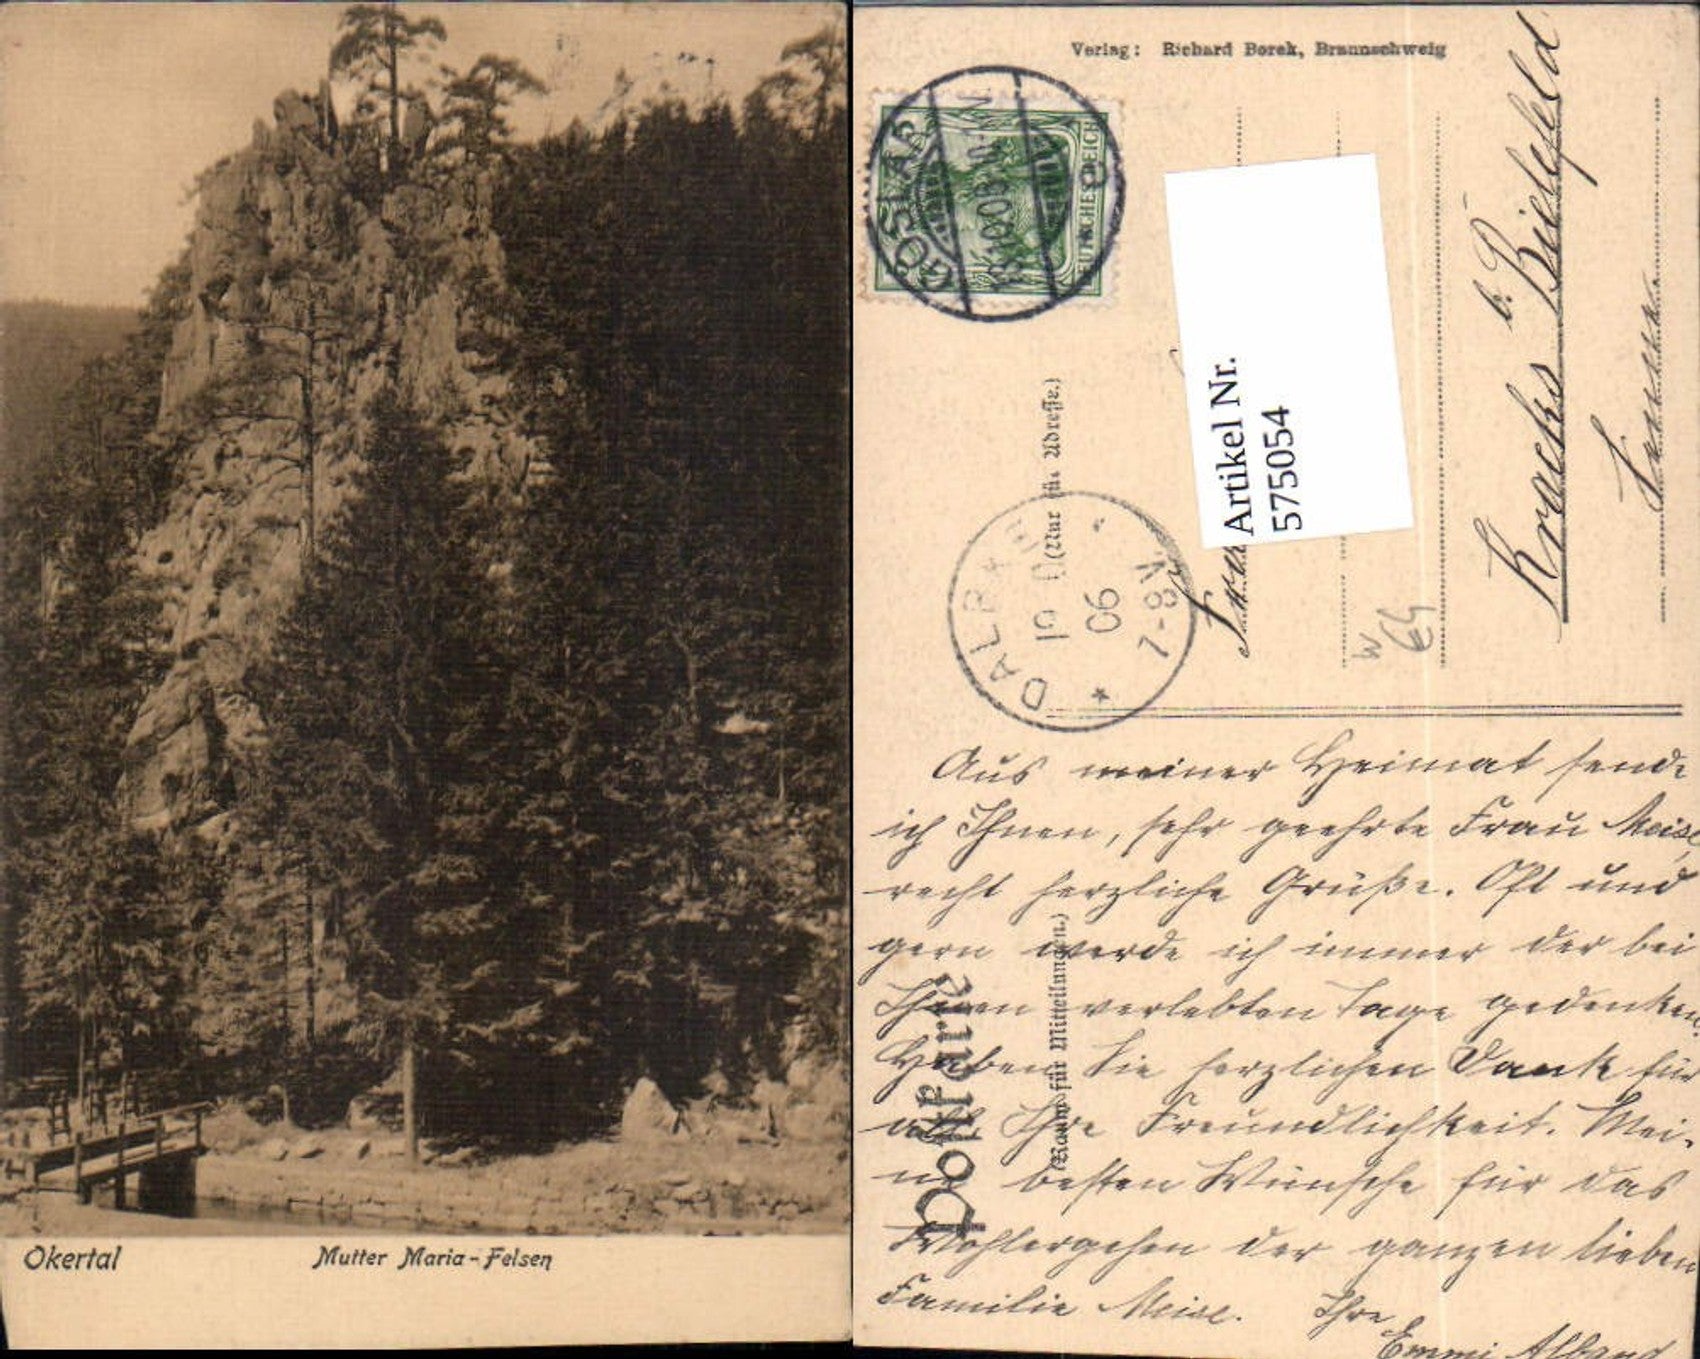 Okertal
Mutter Maria-Felsen
Verlag: Richard Borek, Braunschweig
DEUTSCHES REICH
GOSLAR
Postkarte
(Raum für Mitteilungen.)
(Nur für Adresse.)
06
7-8V
Artikel Nr.
575054
Kracks b. Bielefeld
W
Aus meiner Heimat sende
ich Ihnen, sehr geehrte Frau Meise
recht herzliche Grüße. Oft und
gern werde ich immer der bei
Ihnen verlebten Tage gedenken.
Haben Sie herzlichen Dank für
all Ihre Freundlichkeit. Mei-
ne besten Wünsche für das
Wohlergehen der ganzen lieben
Familie Meise. Ihre
Emmi Alband